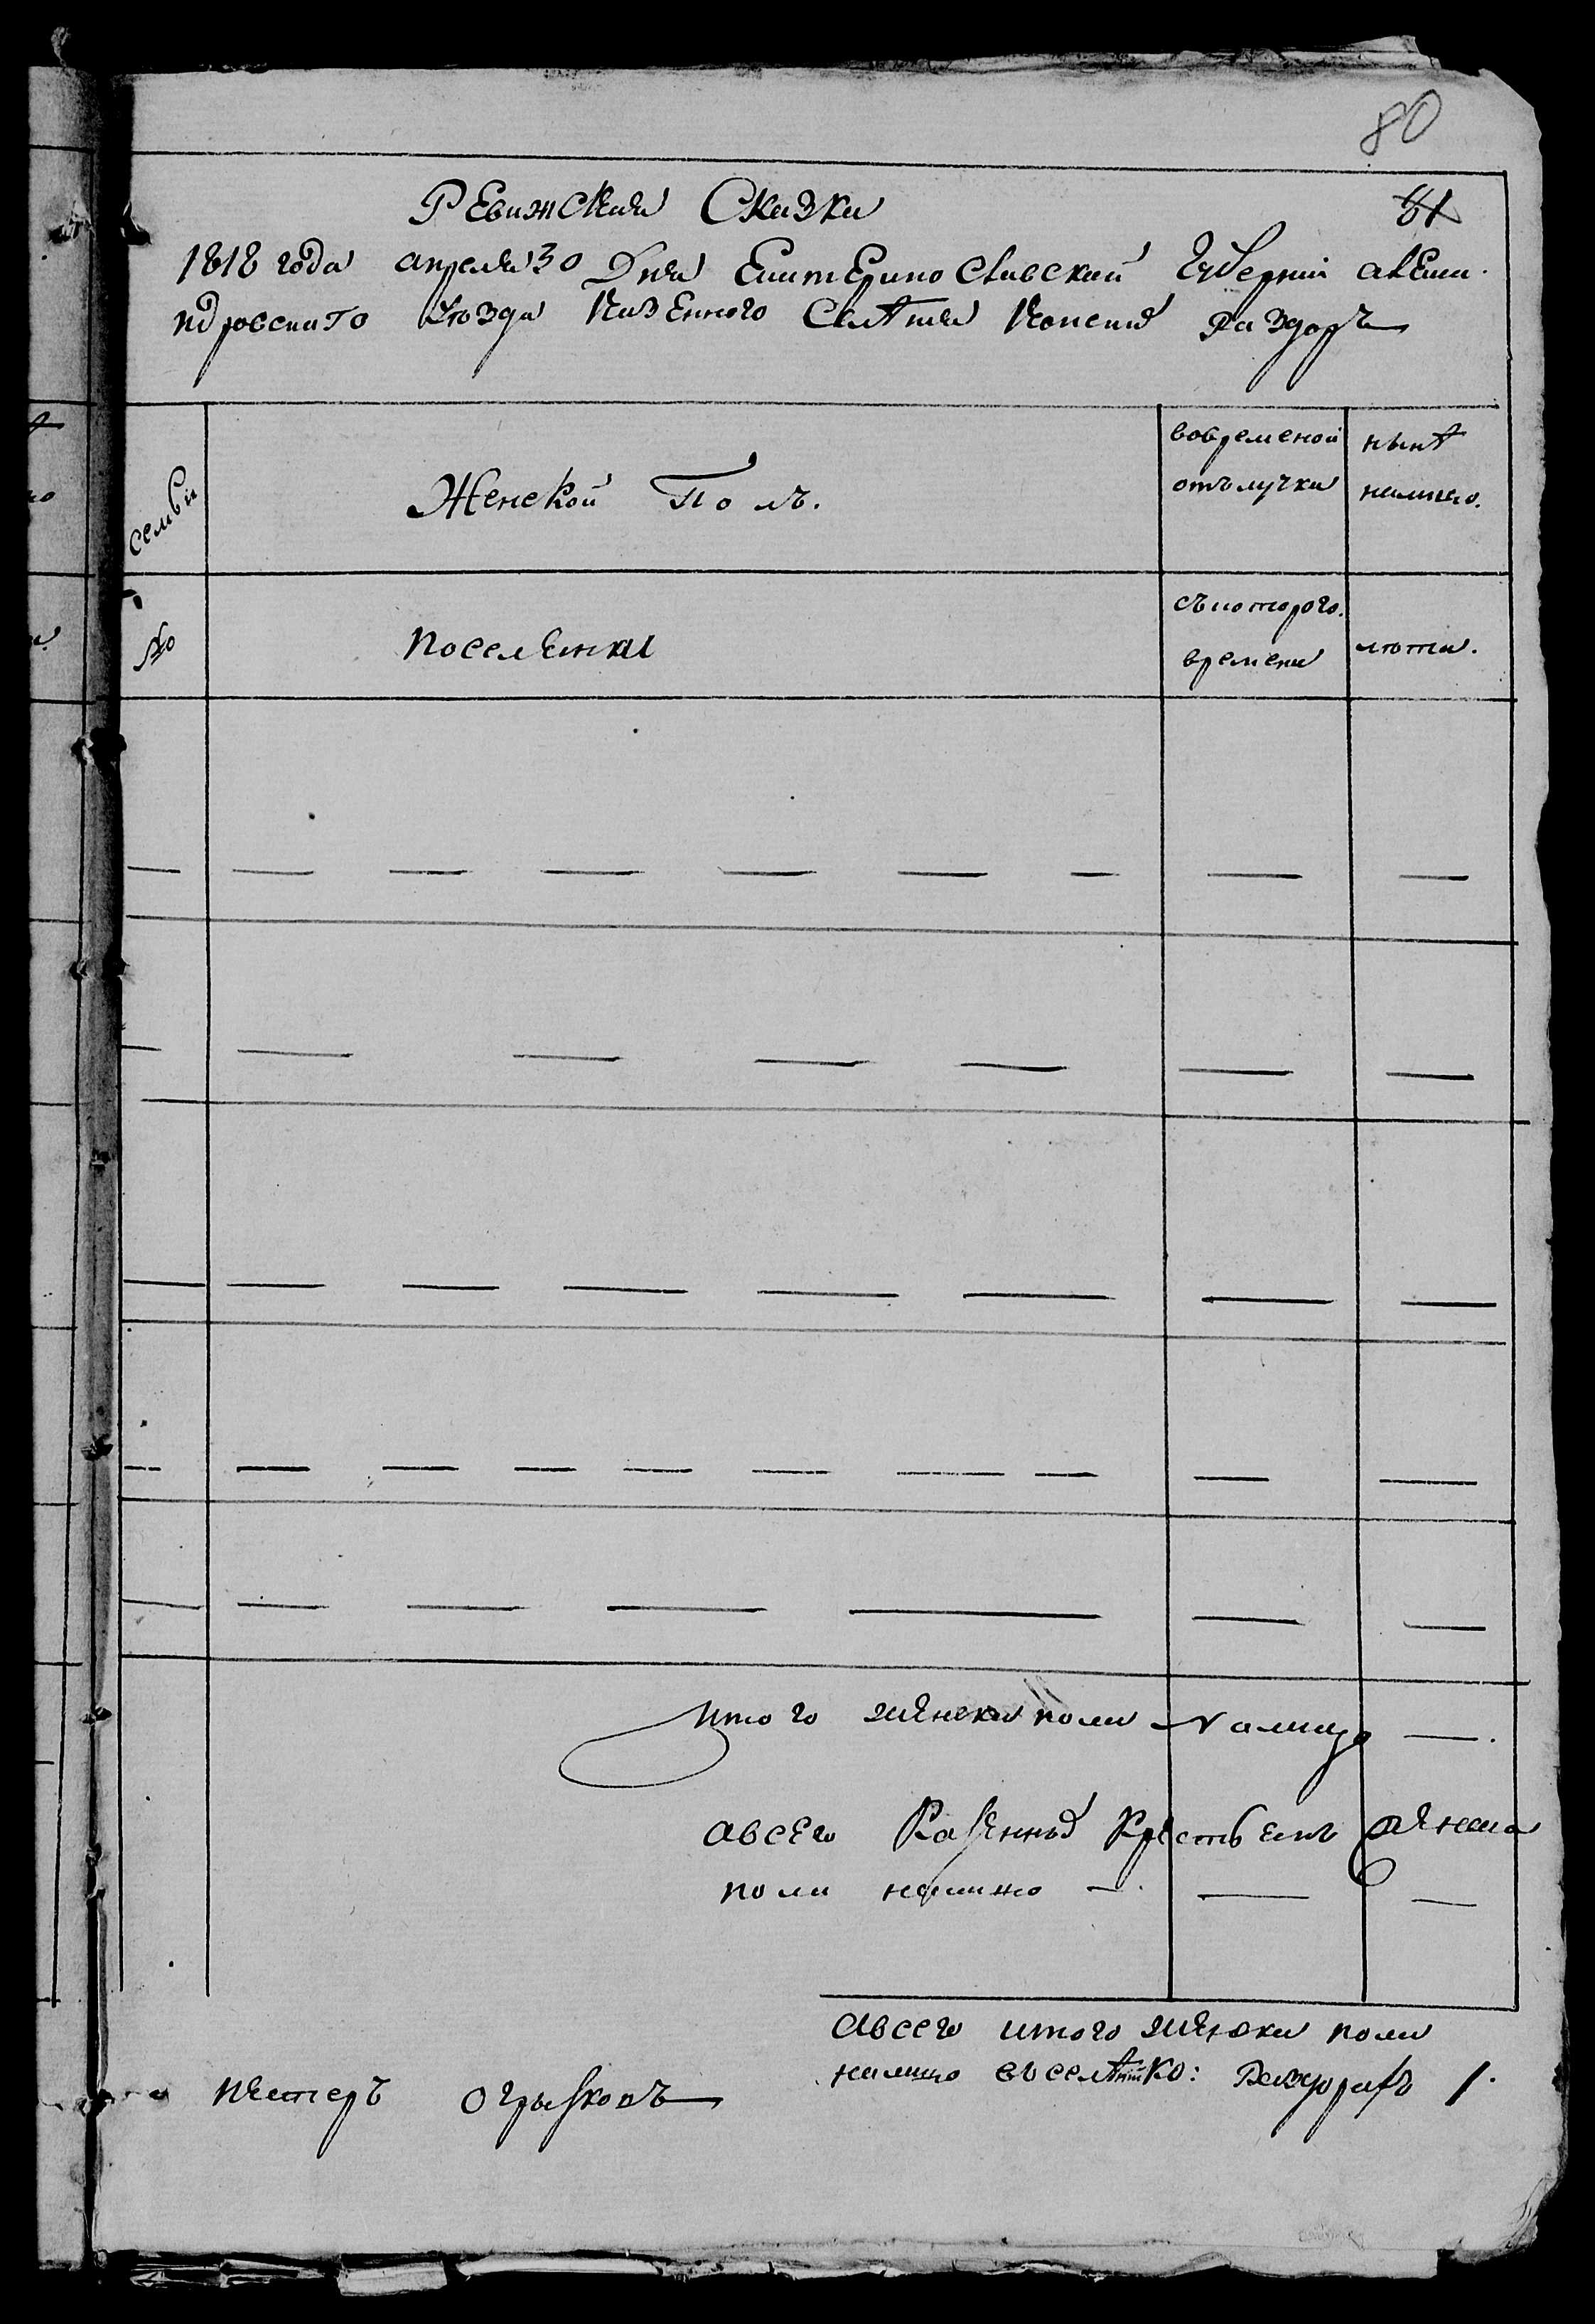 80
81
Ревижская Сказка
1818 года апреля 30 Дня Екатериносlавской Губернии алекса
ндровскаго уѣзда Казенного Селѣния Конских Раздоръ
семьи
Женской Полъ.
вовременой
отълучки
нынѣ
налицо.
№
поселенки
съ которого
времени
лѣта.
итого женска пола налицо — .
авсего Казенных Крестьянъ женска
пола налицо — . — —
авсего итого женска пола
налицо въ селѣнии Ко: Раздорахъ 1.
Петеръ Огрызковъ